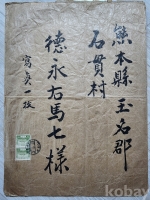 熊本縣玉名郡
石貫村
德永右馬七様
寫真一枚
kobay